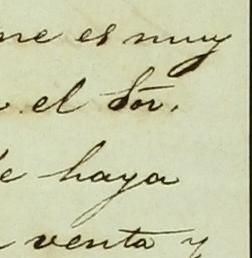 me es muy
el Sōr.
haya
venta y